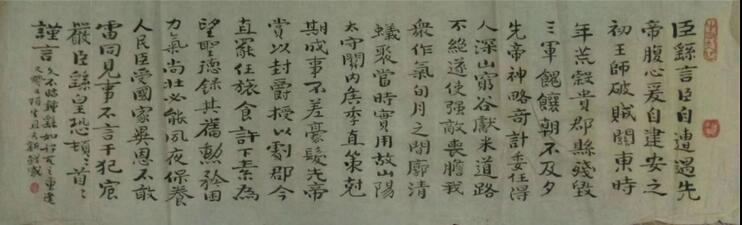 臣繇言臣自遭遇先
帝腹心爰自建安之
初王師破賊關東時
年荒穀貴郡縣殘毀
三軍餽饟朝不及夕
先帝神略奇計委任得
人深山窮谷獻米道路
不絕遂使強敵喪膽我
衆作氣旬月之間廓清
蟻聚當時實用故山陽
太守關內侯季直策尅
期成事不差豪髮先帝
賞以封爵授以劇郡今
直罷任旅食許下素為
望聖德錄其舊勳矜困
力氣尚壯必能夙夜保養
人民臣受國家異恩不敢
雷同見事不言干犯宸
嚴臣繇皇恐頓〻首〻
謹言